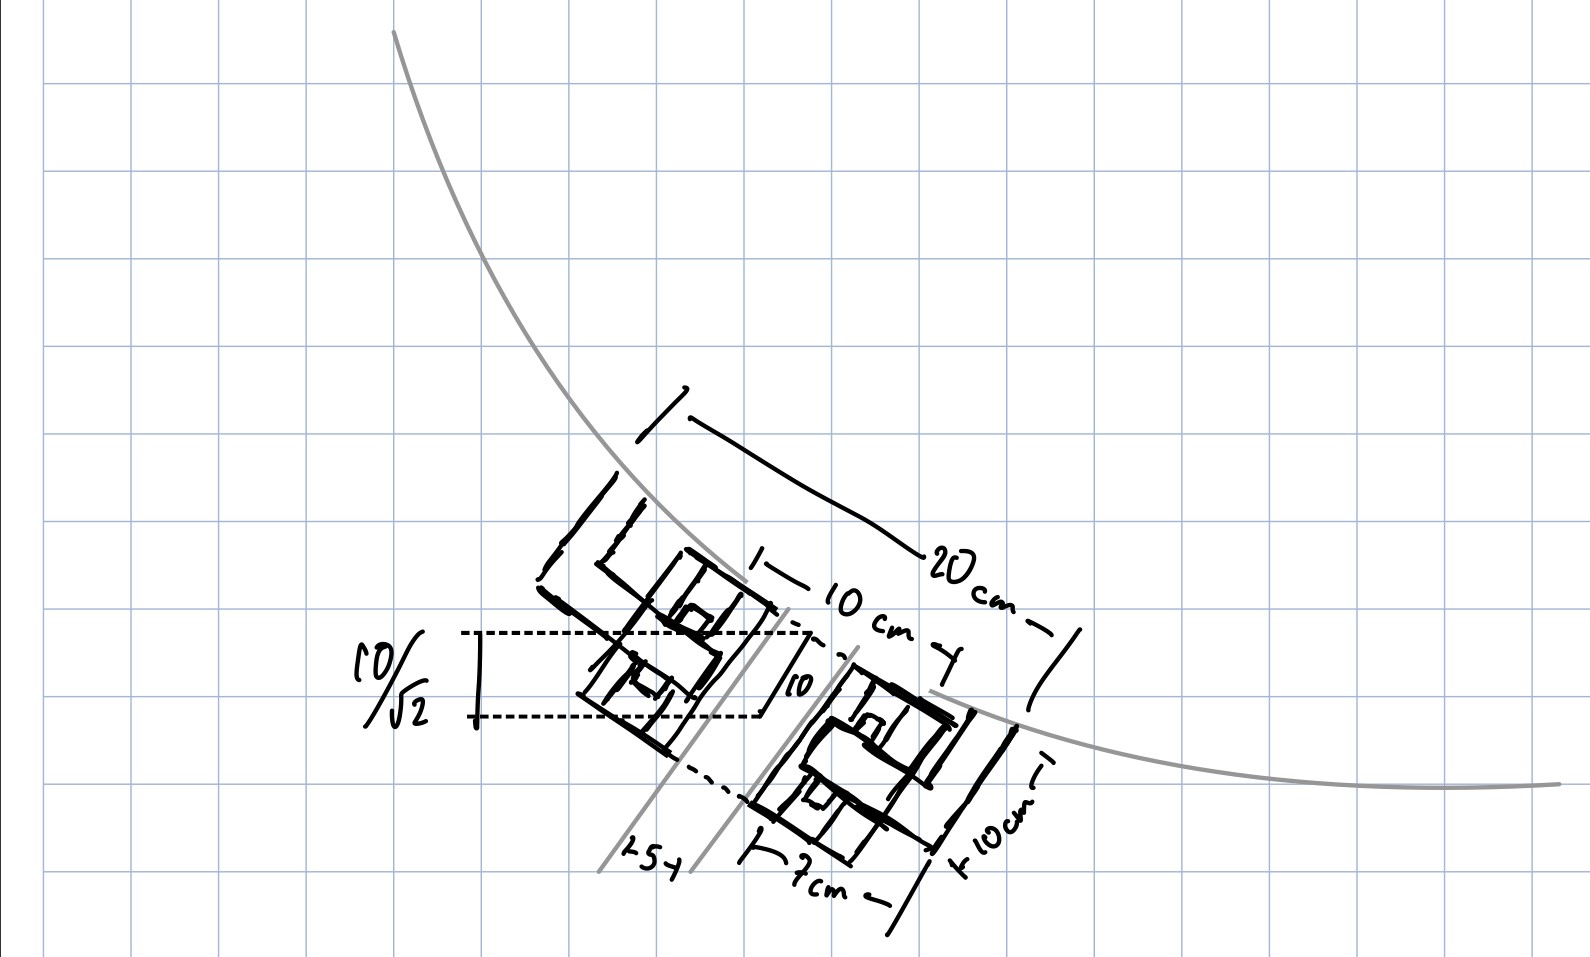 20 cm
10 cm
10/√2
10
10 cm
5
7 cm